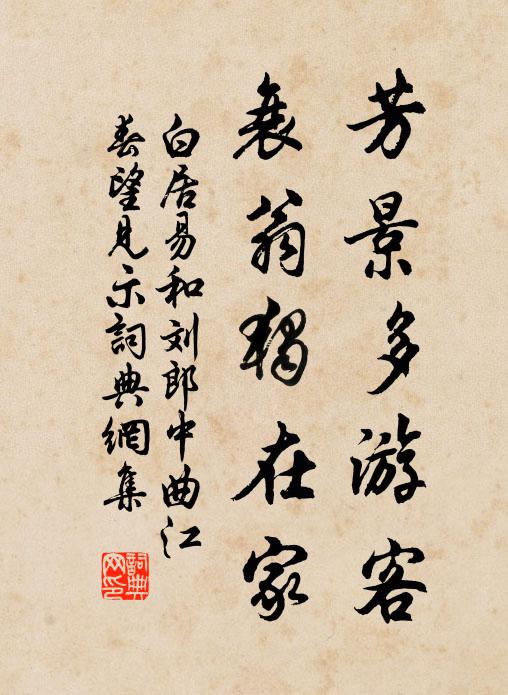 芳景多游客
衰翁独在家
白居易和刘郎中曲江
春望见示詞典網集
詞典网印